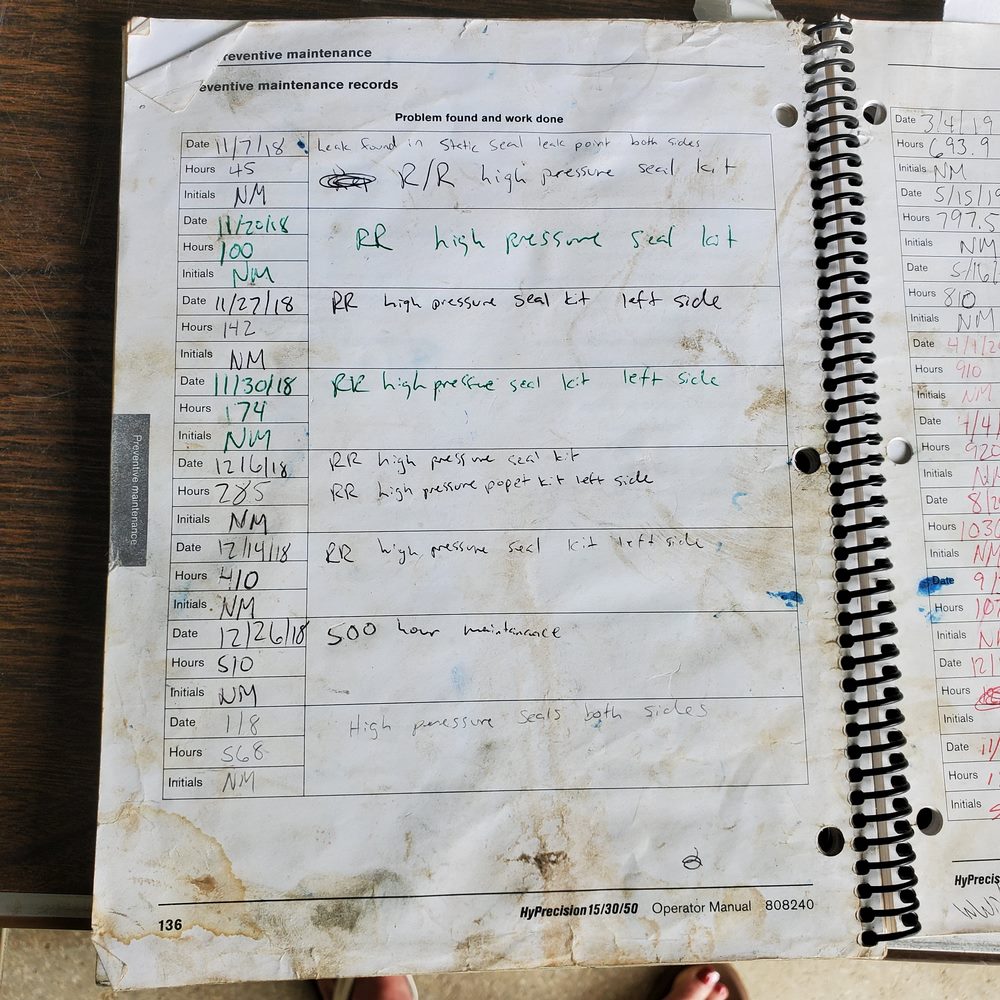 reventive maintenance
eventive maintenance records
Problem found and work done
Date 11/7/18 Leak found in static seal leak point both sides
Hours 45 R/R high pressure seal kit
Initials NM
Date 11/20/18
Hours 100 RR high pressure seal kit
Initials NM
Date 11/27/18 RR high pressure seal kit left side
Hours 142
Initials NM
Date 11/30/18 RR high pressure seal kit left side
Hours 174
Initials NM
Date 12/6/18 RR high pressure seal kit
Hours 285 RR high pressure popet kit left side
Initials NM
Date 12/14/18 RR high pressure seal kit left side
Hours 410
Initials NM
Date 12/26/18 500 hour maintanance
Hours 510
Initials NM
Date 1/8 High pressure seals both sides
Hours 568
Initials NM
Preventive maintenance
136
HyPrecision 15/30/50 Operator Manual 808240
Date 3/4/19
Hours 693.9
Initials NM
Date 5/15/19
Hours 797.5
Initials NM
Date 5/16/
Hours 810
Initials NM
Date 4/1/20
Hours 910
Initials NM
Date
Hours 920
Initials
Date 8/2
Hours 1030
Initials NM
Date 9/
Hours
Initials
Date 12/
Hours
Initials
Date
Hours
Initials
HyPrecis